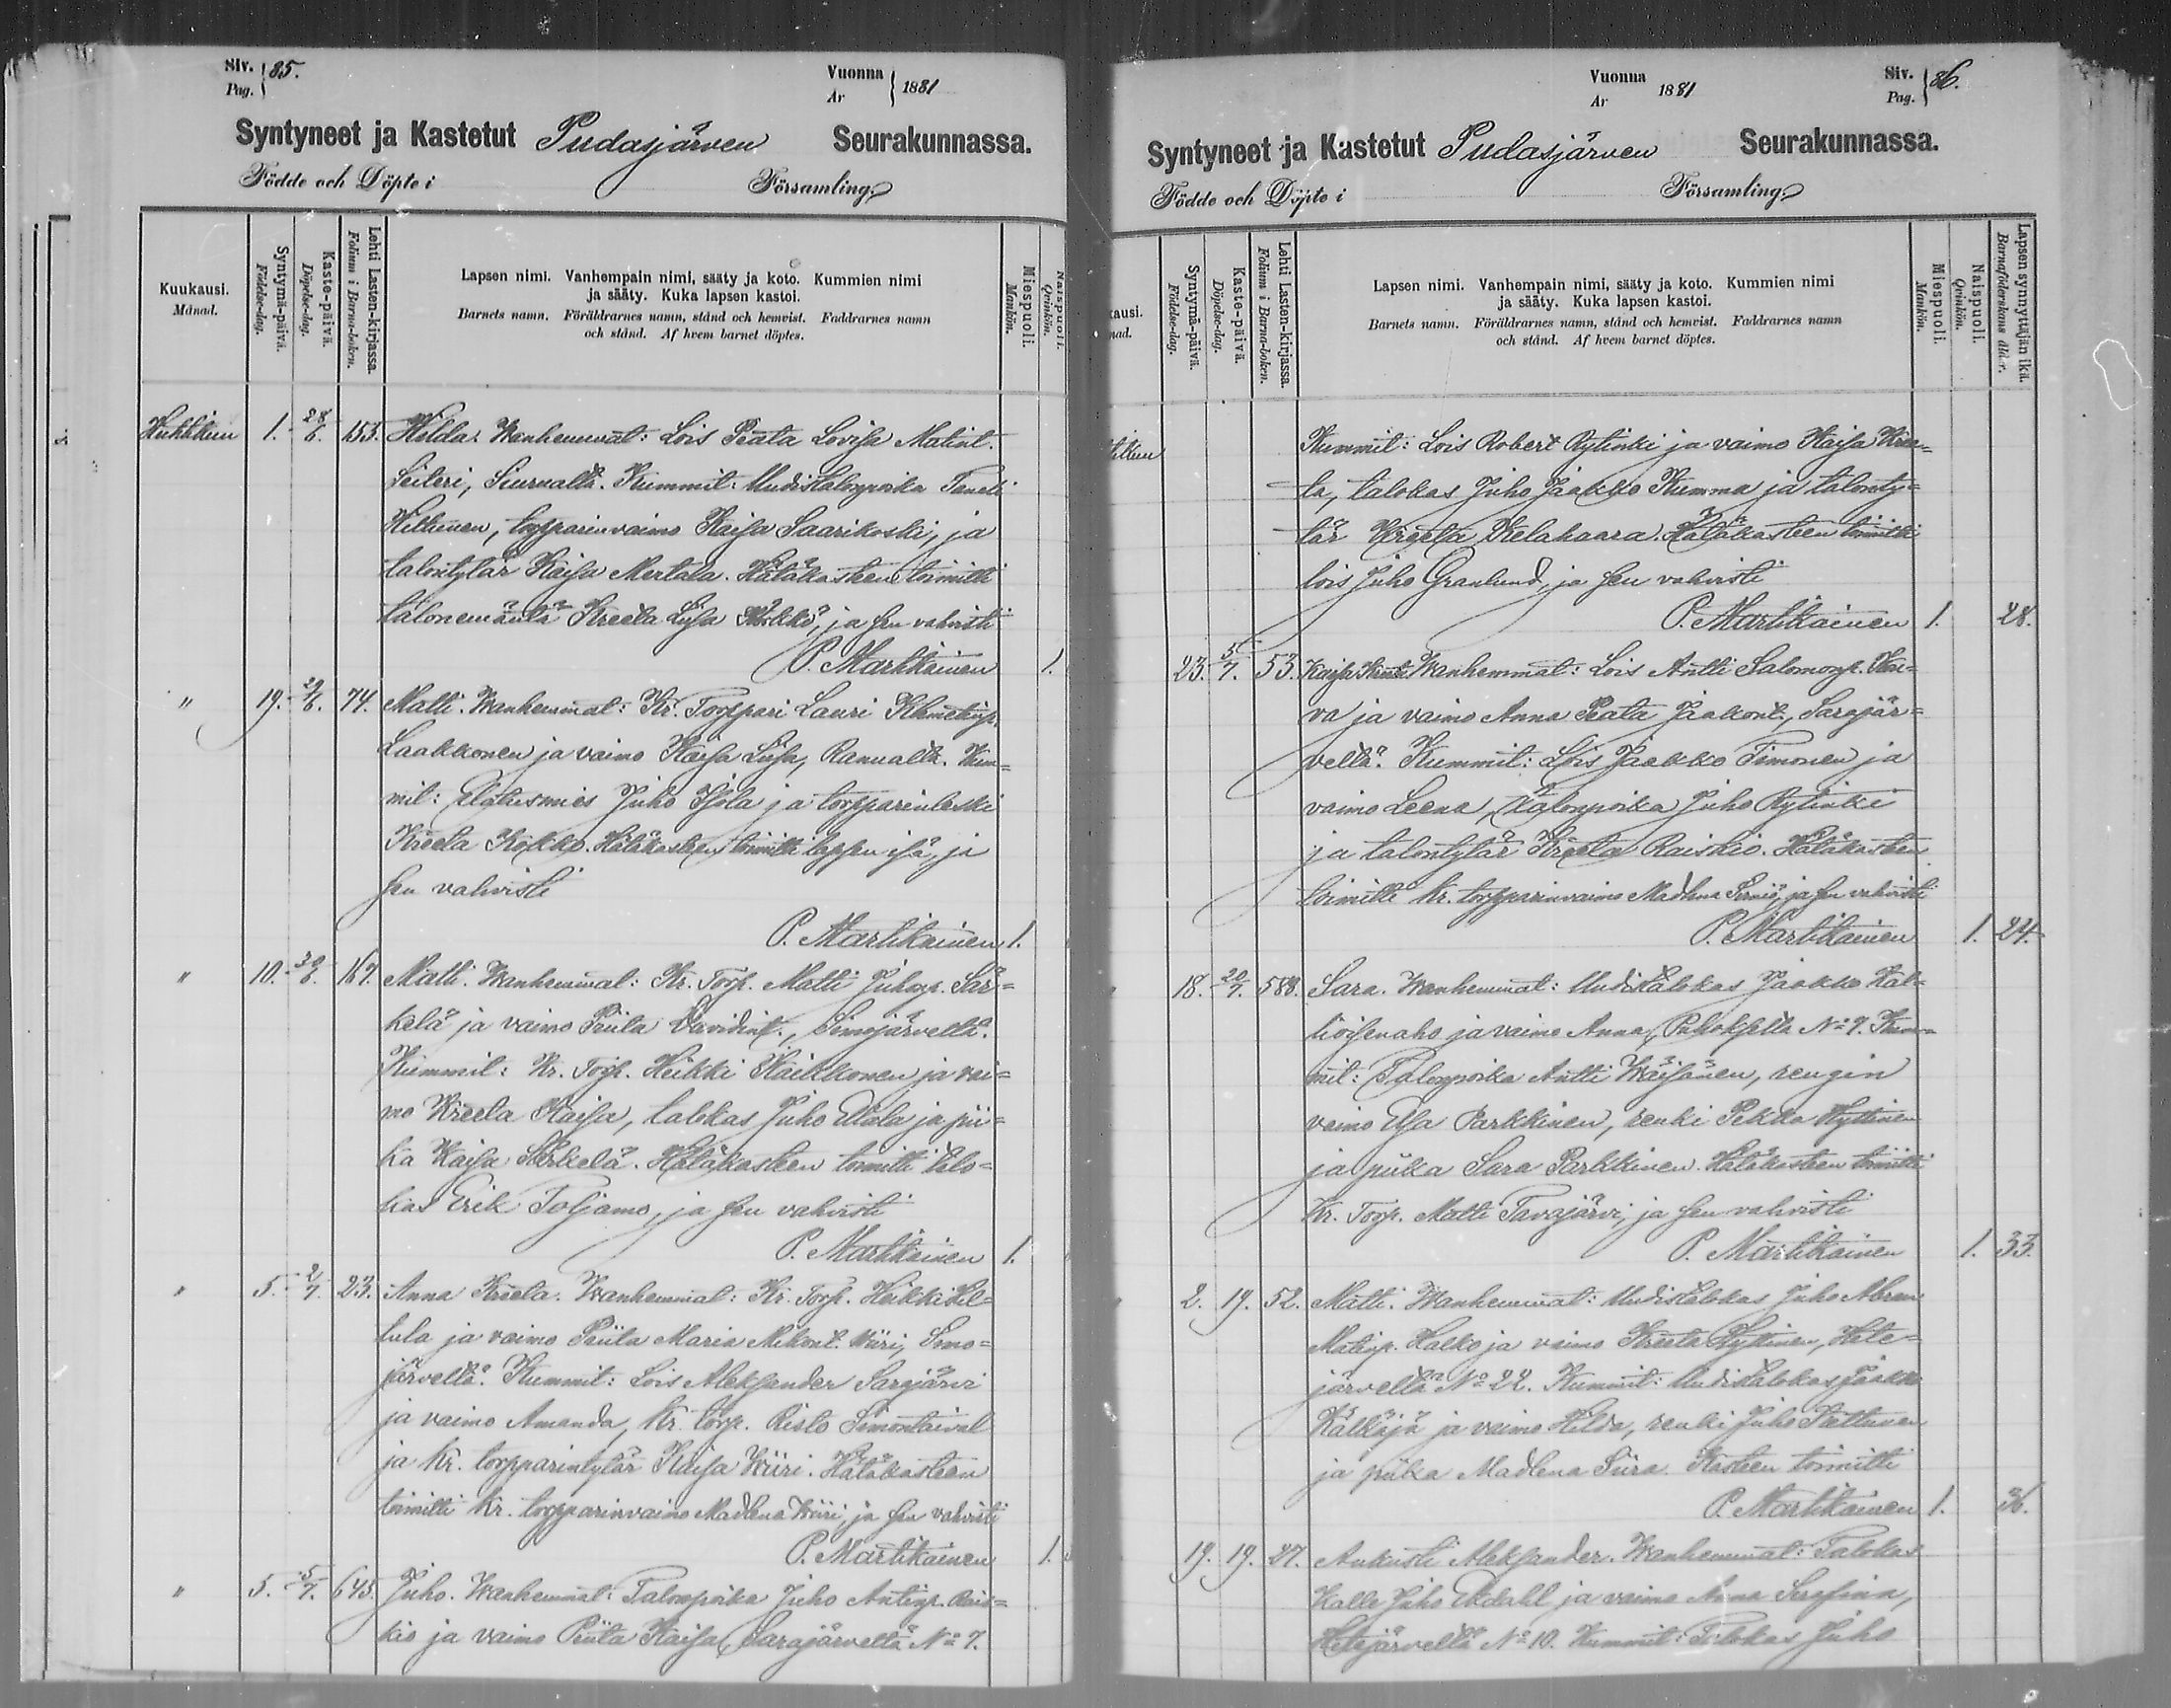 Siv. 85.
Pag.
Vuonna 1881
Ar
Syntyneet ja Kastetut Pudasjärven Seurakunnassa.
Födde och Döpte i Församling
Kuukausi.
Månad.
Syntymä-päivä.
Födelse-dag.
Kaste-päivä.
Döpelse-dag.
Lehti Lasten-kirjassa.
Folium i Barna-boken.
Lapsen nimi. Vanhempain nimi, sääty ja koto. Kummien nimi
ja sääty. Kuka lapsen kastoi.
Barnets namn. Föräldrarnes namn, stånd och hemvist. Faddrarnes namn
och stånd. Af hvem barnet döptes.
Miespuoli.
Mankön.
Naispuoli.
Qvinkön.
Huhtikuu 1. 28/6. 153. Hilda. Wanhemmat: Lois Peata Lovisa Matint.
Seiteri, Siurualta. Kummit: Uudistalonpoika Taneli
Hiltunen, torpparinvaimo Kaisa Saarikoski, ja
talontytär Kaisa Mertala. Hätäkasteen toimitti
talonemäntä Kreeta Liisa ja sen vahvisti
P. Martikainen 1.
" 19. 29/6. 74. Matti. Wanhemmat: Kr. Torppari Lauri Klimetinp.
Laakkonen ja vaimo Kaisa Liisa, Ranualta. Kum=
mit: Elatusmies Juho Isola ja torpparinleski
Kreeta Kokko. Hätäkasteen toimitti lapsen isä, ja
sen vahvisti
P. Martikainen 1.
" 10. 30/6. 167. Matti. Wanhemmat: Kr. Torp. Matti Juhonp. Sär=
kelä ja vaimo Piita Davidint., Simojärveltä.
Kummit: Kr. Torp. Heikki Kaikkonen ja vai=
mo Kreeta Kaisa, talokas Juho Atala ja pii=
ka Kaisa Särkelä. Hätäkasteen toimitti talo=
kas Erik Toljamo, ja sen vahvisti
P. Martikainen 1.
" 5. 2/7. 23. Anna Kreeta. Wanhemmat: Kr. Torp. Heikki Hil=
tula ja vaimo Piita Maria Mikont. Wiiri, Simo=
järveltä. Kummit: Lois Aleksander Sarajärvi
ja vaimo Amanda, Kr. torp. Risto Simontaival
ja Kr. torpparintytär Kaisa Wiiri. Hätäkasteen
toimitti Kr. torpparinvaimo Madlena Wiiri, ja sen vahvisti
P. Martikainen 1.
" 5. 5/7. 645. Juho. Wanhemmat: Talonpoika Juho Antinp. Rais=
kio ja vaimo Piita Kaisa, Sarajärveltä No 7.
Vuonna 1881
Ar
Siv. 86.
Pag.
Syntyneet ja Kastetut Pudasjärven Seurakunnassa.
Födde och Döpte i Församling
kausi.
nad.
Syntymä-päivä.
Födelse-dag.
Kaste-päivä.
Döpelse-dag.
Lehti Lasten-kirjassa.
Folium i Barna-boken.
Lapsen nimi. Vanhempain nimi, sääty ja koto. Kummien nimi
ja sääty. Kuka lapsen kastoi.
Barnets namn. Föräldrarnes namn, stånd och hemvist. Faddrarnes namn
och stånd. Af hvem barnet döptes.
Miespuoli.
Mankön.
Naispuoli.
Qvinkön.
Lapsen synnyttäjän ikä.
Barnaföderskans ålder.
Kummit: Lois Robert Rytinki ja vaimo Kaisa Kree=
ta, talokas Juho Jaakko Kumma ja talonty=
tär Kreeta Kelahaara. Hätäkasteen toimitti
lois Juho Granlund, ja sen vahvisti
P. Martikainen 1. 28.
23. 5/7. 53. Kaisa Wanhemmat: Lois Antti Salomonp.
va ja vaimo Anna Peata Jaakont., Sarajär=
veltä. Kummit: Lois Jaakko Timonen ja
vaimo Leena, talonpoika Juho Rytinki
ja talontytär Kreeta Raiskio. Hätäkasteen
toimitti Kr. torpparinvaimo Madlena ja sen vahvisti
P. Martikainen 1. 24.
18. 20/7. 588. Sara. Wanhemmat: Uudistalokas Jaakko Kal=
lioisenaho ja vaimo Anna, No 7. Kum=
mit: Talonpoika Antti Wäisänen, rengin
vaimo Elsa Parkkinen, renki Pekka Hyttinen
ja piika Sara Parkkinen. Hätäkasteen toimitti
Kr. Torp. Matti Tavajärvi, ja sen vahvisti
P. Martikainen 1. 33.
2. 19. 52. Matti. Wanhemmat: Uudistalokas Juho Abram
Matinp. Halko ja vaimo Kreeta Hyttinen, Hete=
järveltä No 22. Kummit: Uudistalokas Jaakko
Kälkäjä ja vaimo Hilda, renki Juho
ja piika Madlena Siira. Kasteen toimitti
P. Martikainen 1. 36.
19. 19. 27. Aukusti Aleksander. Wanhemmat: Talokas
Kalle Juho Ekdahl ja vaimo Anna Serafina,
Hetejärveltä No 10. Kummit: Talokas Juho